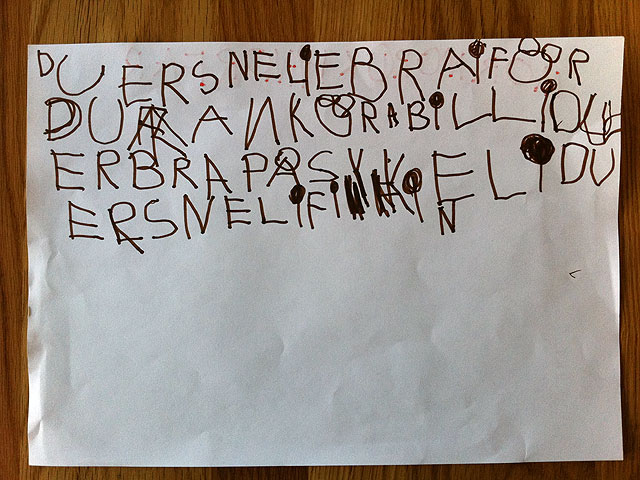 DUERSNELIEBRAIFÖR
DURANKÖRABILLIDU
ERBRAPÅSYKELIDU
ERSNELIFIN